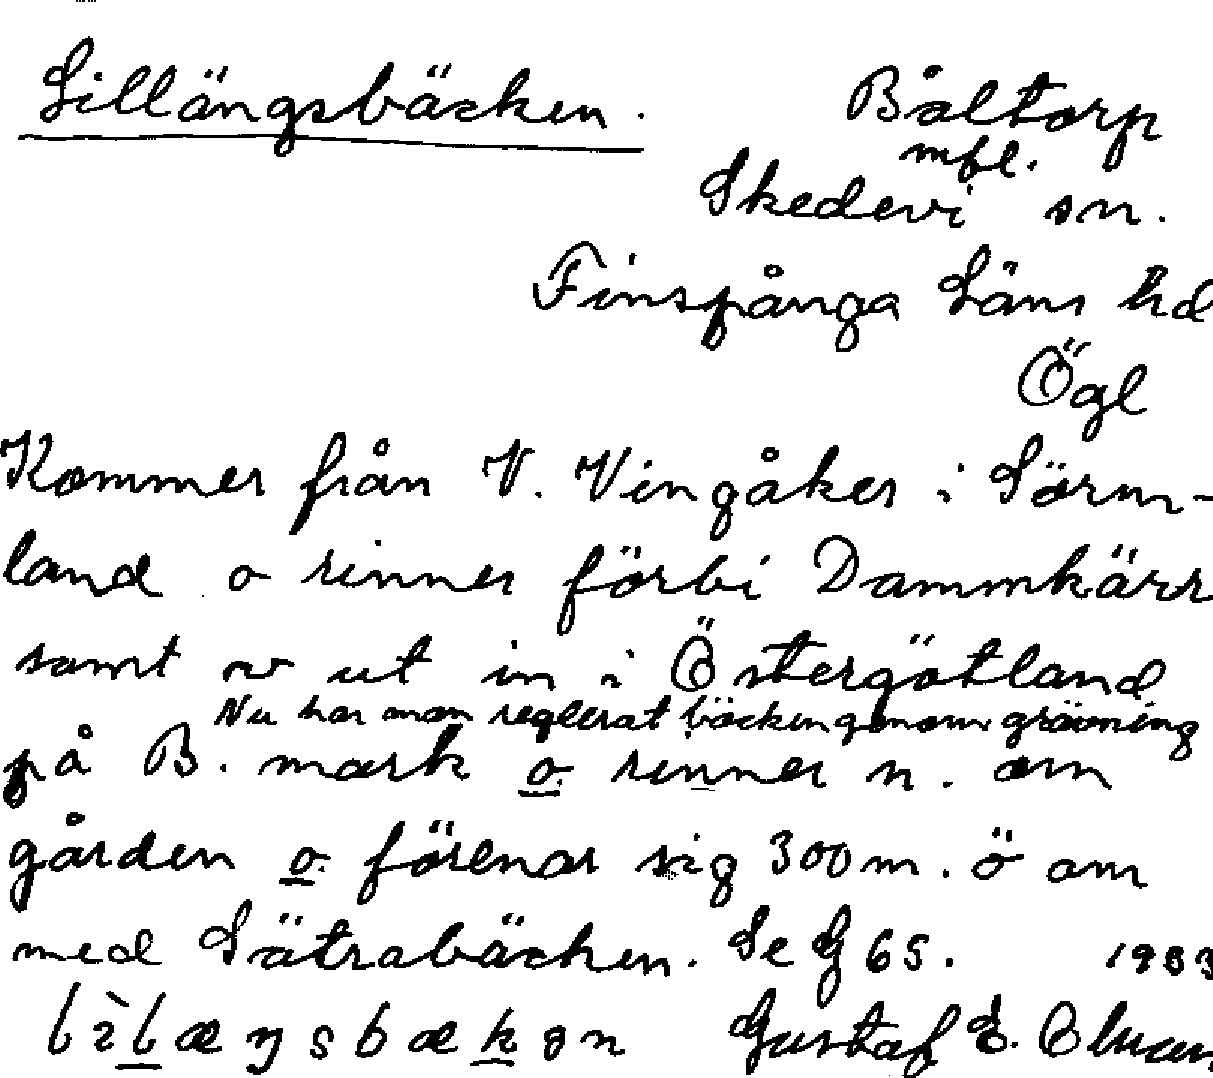 Lillängsbäcken.
Båltorp
mfl.
Skedevi sn.
Finspånga Läns hd
Ögl
Kommer från V. Vingåker i Sörm-
land o rinner förbi Dammkärr
samt ut in i Östergötland
Nu har man reglerat bäcken genom grävning
på B. mark o. rinner n. om
gården o. förenar sig 300 m. ö om
med Sätrabäcken. Se G 65. 1933
lìlæŋsbækən Gustaf E.